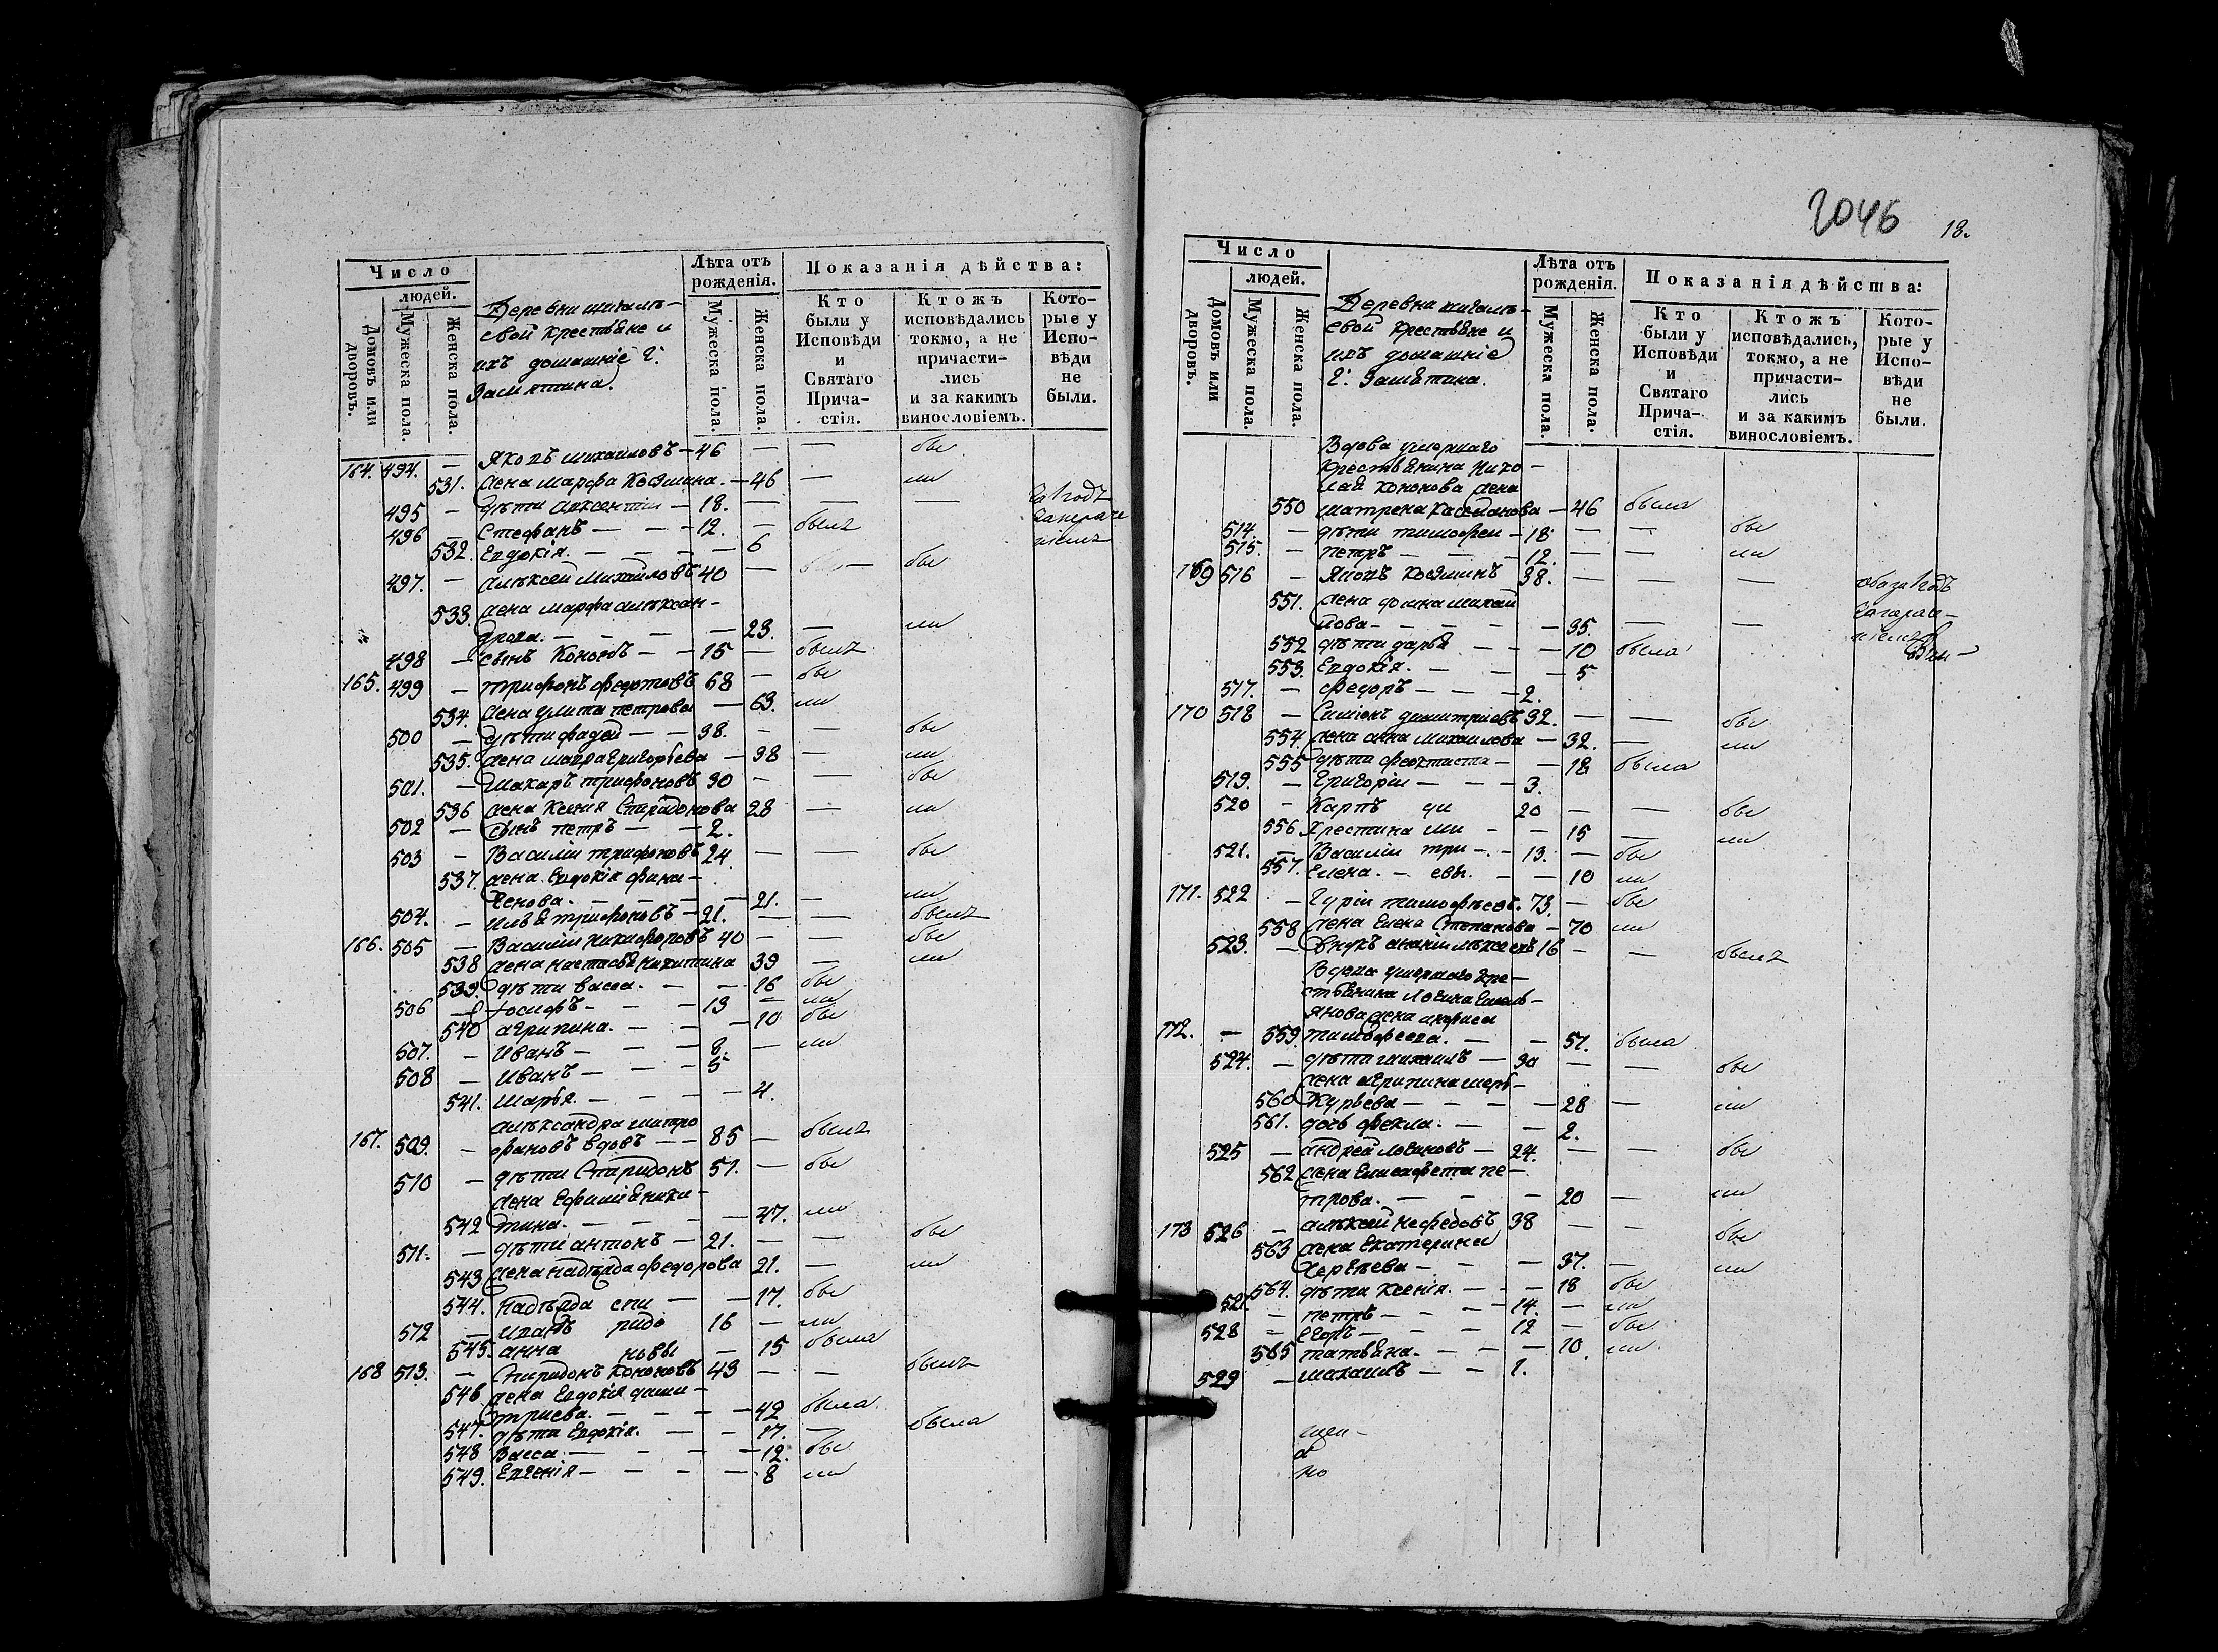 Число
людей.
Домовъ или дворовъ.
Мужеска пола.
Женска пола.
Деревни
свой крестьяне и
ихъ домашніе Г.
Замятина.
Лѣта отъ рожденія.
Мужеска пола.
Женска пола.
Показанія дѣйства:
Кто были у Исповѣди и Святаго Прича-стія.
Ктожъ исповѣдались токмо, а не причасти-лись и за какимъ винословіемъ.
Кото-рые у Испо-вѣди не были.
164. 494. — Яковъ Михайловъ — 46 — — бы
531. жена Марфа Козмина. — 46 — ли
495 — дѣти Авксентіи — 18. — — —
496 — Стефанъ — — — 12. — былъ
532. Евдокія. — — — — 6
497. — Алѣксей Михайловъ 40 — — бы
533. жена Марфа Алѣксан-
дрова. — — — — 23. — ли
498 — сынъ Кононъ — — 15 — былъ
165. 499 — Трифонъ Федотовъ 68 — бы
534. жена Улита Петрова — 63. ли
500 — дѣти Фадей — — 38. — — бы
535. жена Мавра Григорьева — 38 — ли
501. — Макаръ Трифоновъ 30 — — бы
536 жена Ксенія Спиридонова 28 — ли
502 — сынъ Петръ — — 2.
503 — Василіи Трифоновъ 24 — — бы
537. жена Евдокія Фили-
пова. — — — — 21. — ли
504. — Илья Трифоновъ — 21. — — былъ
166. 505 — Василіи Никифоровъ 40 — — бы
538 жена Настасья Никитина 39 — ли
539. дѣти Васса. — — 16 бы
506 — Іосифъ — — — 13 — ли
540 Агрипина. — — — 10 бы
507. — Иванъ — — — 8. — ли
508 — Иванъ — — — 5
541. Марья. — — — — 4.
Алѣксандра Митро
167. 509. — фановъ вдовъ — — 85 — былъ
510 — дѣти Спиридонъ 51. — бы
жена Ефимія Ники-
542 тина. — — — — 47. ли
511. — дѣти Антонъ — 21. — — бы
543 жена Надѣжда Федорова 21. — ли
544. Надѣжда спи — — 17. бы
512 — Иванъ ридо 16 — ли
545. Анна новы — 15 была
168 513. — Спиридонъ Кононовъ 43 — — былъ
546 жена Евдокія Дими-
тріева. — — — — 42 была
547. дѣти Евдокія. — — 17. — была
548 Васса. — — — — 12. бы
549. Евгенія — — — — 8 ли
2046
18.
Число
людей.
Домовъ или дворовъ.
Мужеска пола.
Женска пола.
Деревни
свой крестьяне и
ихъ домашніе
Г. Замятина.
Лѣта отъ рожденія.
Мужеска пола.
Женска пола.
Показанія дѣйства:
Кто были у Исповѣди и Святаго Прича-стія.
Ктожъ исповѣдались, токмо, а не причасти-лись и за какимъ винословіемъ.
Кото-рые у Испо-вѣди не были.
Вдова умершаго
крестьянина Нико —
лая Кононова жена
550 Матрена Касьянова — 46 была
514. — дѣти Тимофеи — 18 — — бы
515. — Петръ — — — 12. — — ли
169 516 — Яковъ Козминъ 38. — — — оба за 1 годъ
551. жена Фома Михай
лова — — — — 35. — —
552 дѣти Дарья — — — 10 была
553. Евдокія. — — — 5
517. — Федоръ — — — 2.
170 518 — Симіонъ Димитріевъ 32. — — бы
554. жена Анна Михаилова — 32. — ли
555 дѣти Феоктиста — — 18 была
519. — Григоріи — — — 3.
520 — Карпъ ди 20 — — бы
556 Хрестина ми — — 15 — ли
521. — Василіи три — — 13. — бы
557. Елена. — евы. — — 10 ли
171. 522 — Гуріи Тимофѣевъ. 73. — бы
558 жена Елена Степанова — 70 ли
523. — внукъ Ананіи Алѣксеевъ 16 — — былъ
Вдова умершаго кре —
стьянина Логина Емель —
янова жена Анфиса
172. — 559. Тимофеева. — — 51. была
524. — дѣти Михаилъ — 30 — — бы
жена Агрипина Мер —
560 курьева — — — — 28 — ли
561. дочь Фекла. — — 2.
525 — Андрей Логиновъ — 24. — — бы
562 жена Елисавета Пе —
трова. — — — 20 — ли
173 526 — Алѣксей Нефедовъ 38 — — бы
563 жена Екатерина
Сергѣева — — — 37. — ли
564. дѣти Ксенія. — — — 18 бы
527 — Петръ — — — 14. — ли
528 — Егоръ — — — 12 — бы
565 Татьяна. — — — 10. ли
529 — Михаилъ — — 1.